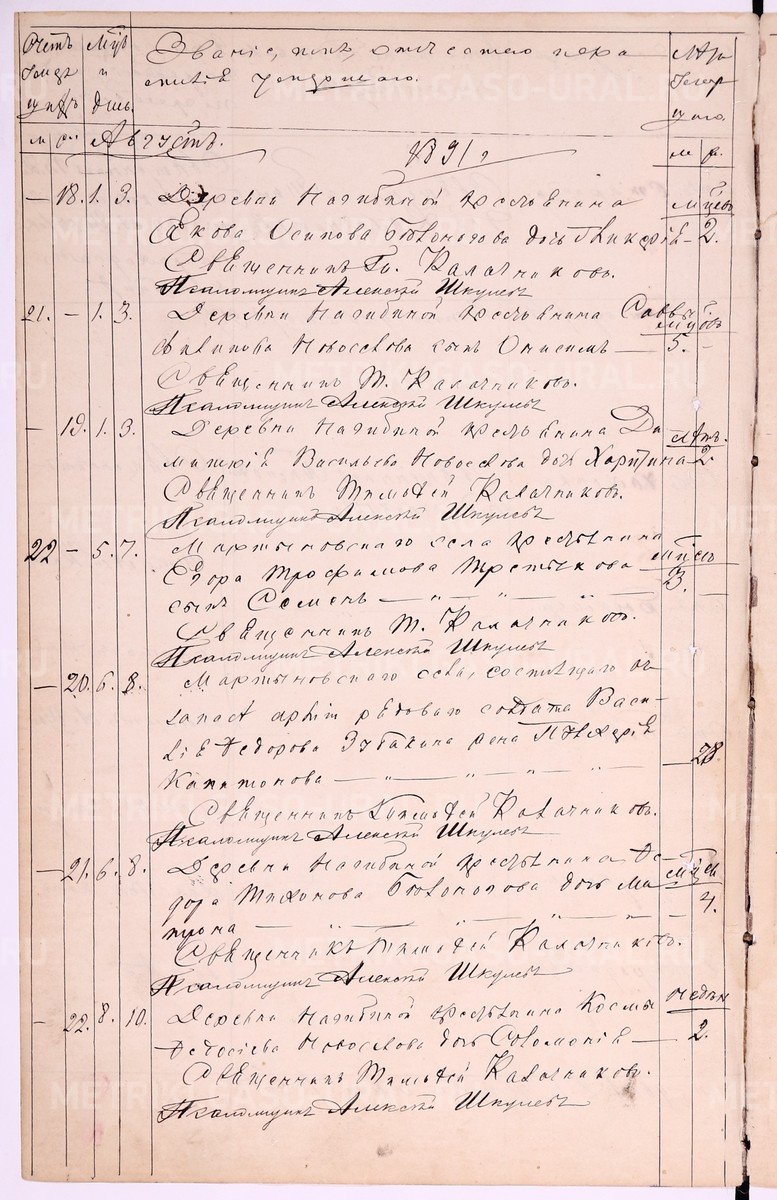 Счетъ Мѣс. Званіе, имя, отчество и фа- Лѣта
умер и милія умершаго. умер
шихъ день. шаго.
м ж Августъ. 1891 г м. ж.
— 18. 1. 3. Деревни Нагибиной крестьянина мѣсяц.
Якова Осипова Бѣлоногова дочь Гликерія — 2.
Священникъ Т. Калачниковъ.
Псаломщикъ Алексѣй Шкулевъ
21. — 1. 3. Деревни Нагибиной крестьянина Саввы мѣсяц.
Филипова Новосѣлова сынъ Онисимъ — 5. —
Священникъ Т. Калачниковъ.
Псаломщикъ Алексѣй Шкулевъ
— 19. 1. 3. Деревни Нагибиной крестьянина Ди- лѣтъ.
митрія Васильева Новосѣлова дочь Харитина — 2
Священникъ Тимофей Калачниковъ.
Псаломщикъ Алексѣй Шкулевъ
22 — 5. 7. Мартыновскаго села крестьянина мѣсяц
Егора Трофимова Третьякова — 3. —
сынъ Семенъ — " — " — " —
Священникъ Т. Калачниковъ.
Псаломщикъ Алексѣй Шкулевъ
— 20. 6. 8. Мартыновскаго села, состоящаго въ
запасѣ арміи рядоваго солдата Васи-
лія Федорова Зубакина жена Пелагія — 28
Капитонова — " — " — " —
Священникъ Тимофей Калачниковъ.
Псаломщикъ Алексѣй Шкулевъ
— 21. 6. 8. Деревни Нагибиной крестьянина Фе- мѣсяц
дора Тихонова Бѣлоногова дочь Ма- — 4.
трона — " — " — " —
Священникъ Тимофей Калачниковъ.
Псаломщикъ Алексѣй Шкулевъ
— 22. 8. 10. Деревни Нагибиной крестьянина Космы недѣл
Федосіева Новосѣлова дочь Соломонія — 2.
Священникъ Тимофей Калачниковъ.
Псаломщикъ Алексѣй Шкулевъ